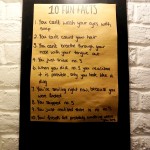 10 FUN FACTS
1. You can't wash your eyes with
soap
2. You can't count your hair
3. You can't breathe through your
nose with your tongue out
4. You just tried no 3
6. When you did no 3 you realised
it is possible, only you look like a
dog
7. You're smiling right now, because you
were fooled
8. You skipped no 5
9. You just checked